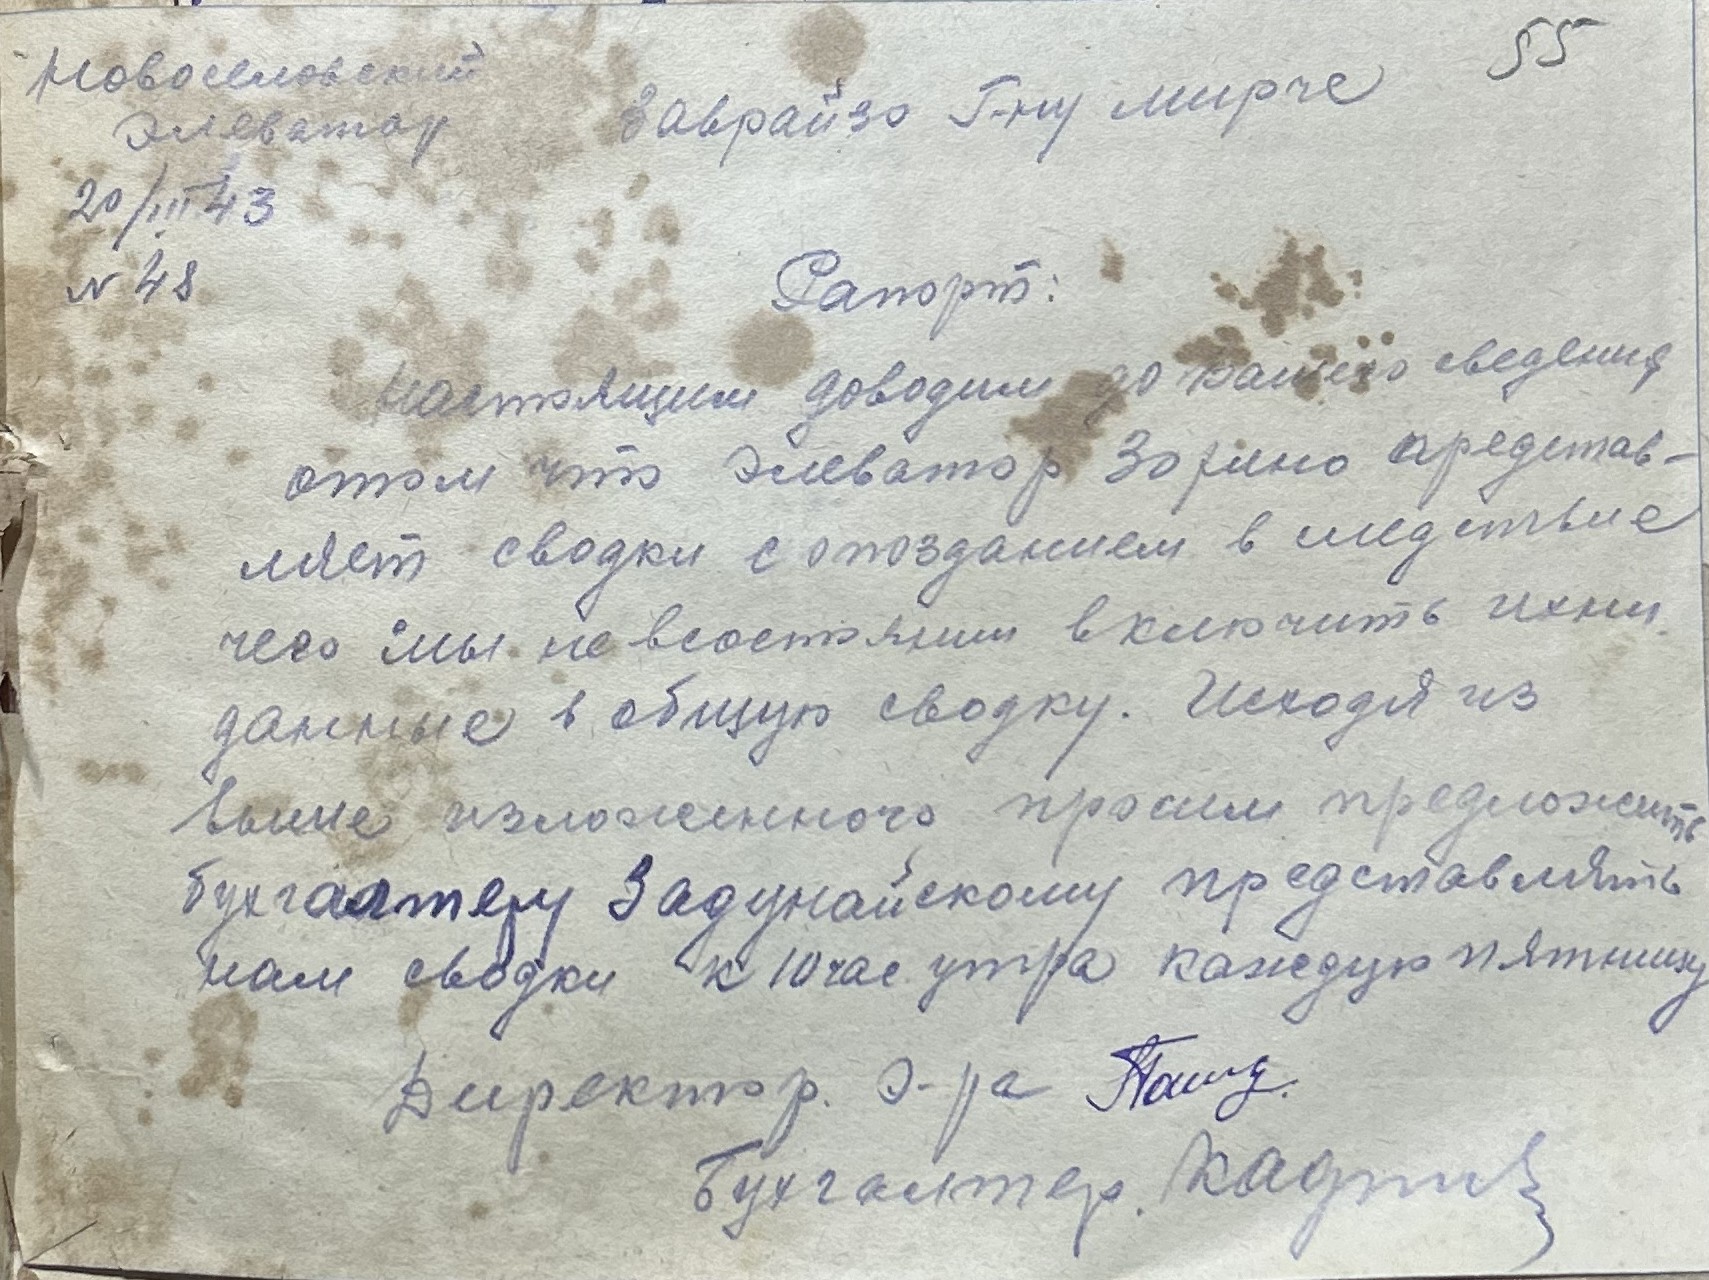 55
Новоселовский
Элеватор
20/III 43
N 48
Заврайзо Г-ну Мирче
Рапорт:
Настоящим доводим до вашего сведения
отом что Элеватор Зорино представ-
ляет сводки с опозданием в следствие
чего мы не всостянии включить ихни
данные в общую сводку. Исходя из
выше изложенного просим предложить
бухгалтеру Задунайскому представлять
нам сводки к 10 час. утра каждую пятницу
Директор. Э-ра
Бухгалтер.